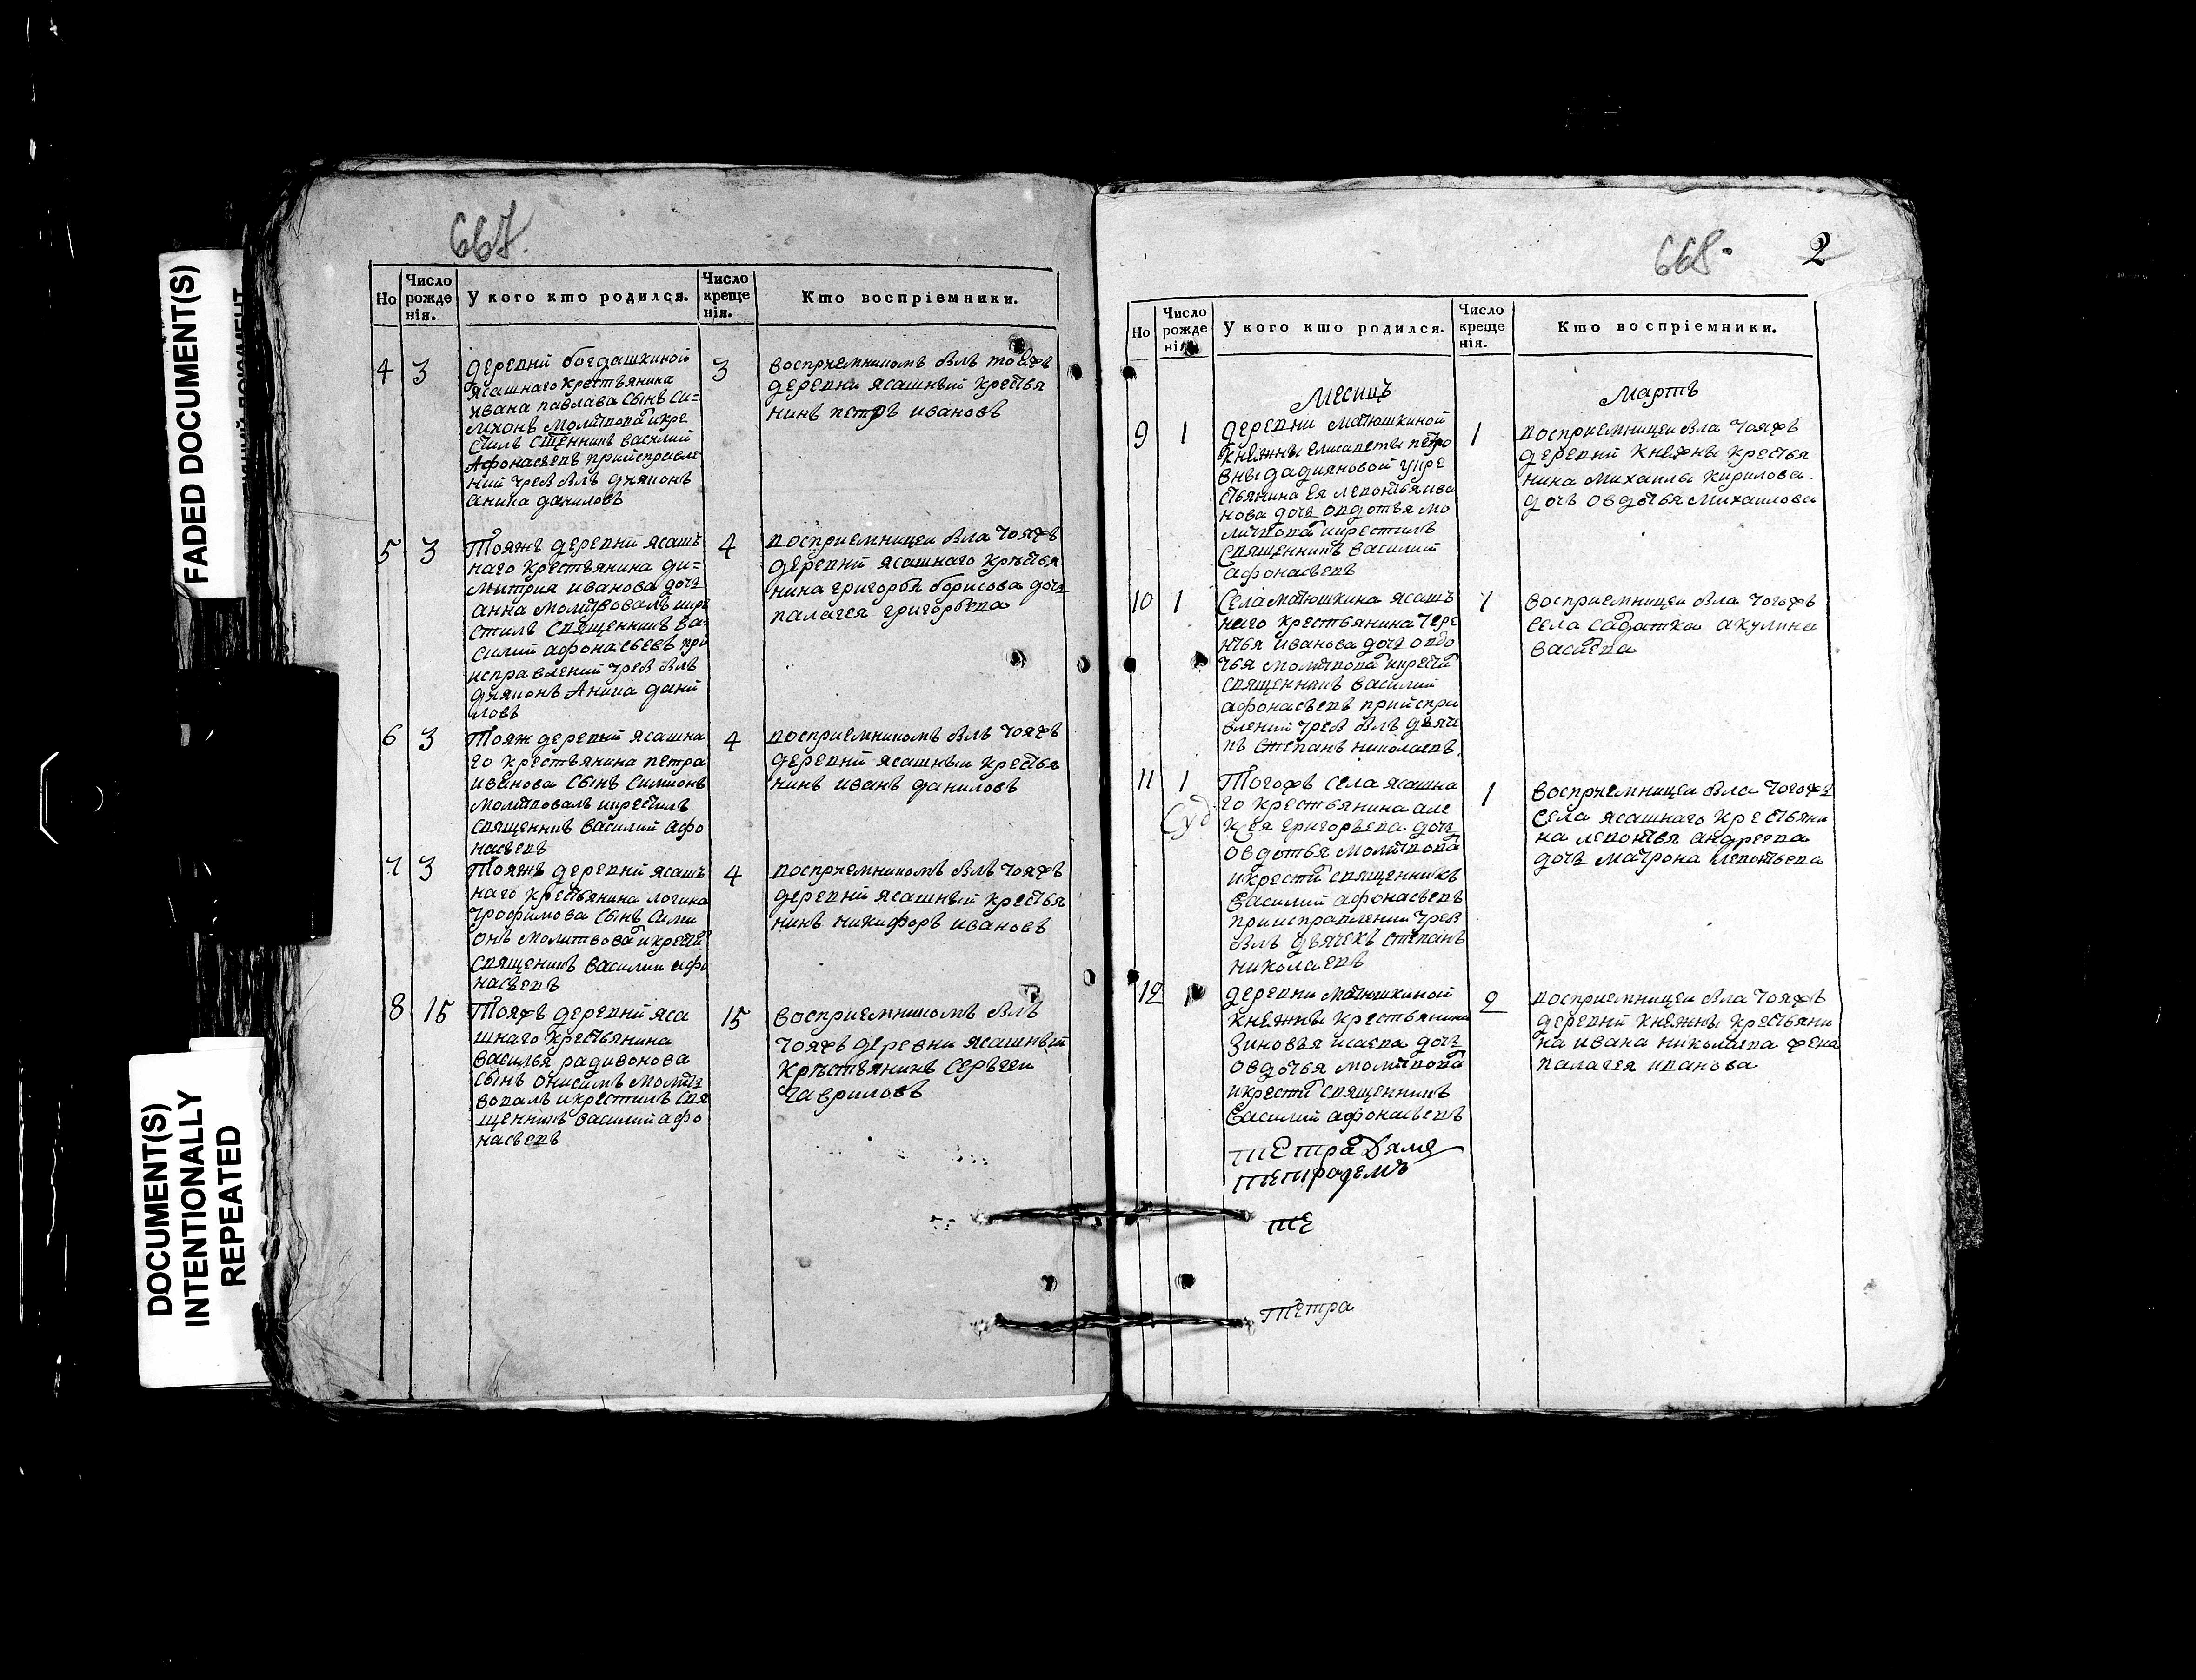 FADED DOCUMENT(S)
DOCUMENT(S)
INTENTIONALLY
REPEATED
667.
Но
Число рожде нія.
У кого кто родился.
Число креще нія.
Кто воспріемники.
4 3
деревни богдашкиной
ясашнаго крестьянина
ивана павлава сынъ си=
мионъ молитвова и кре
стилъ сщенникъ василий
Афонасьевъ при исправле
нии треб былъ дьяконъ
аника даниловъ
3
восприемникомъ былъ тояжъ
деревни ясашный крестья
нинъ петръ ивановъ
5 3
Тояжъ деревни ясашъ
наго крестьянина ди=
митрия иванова дочь
анна молитвовалъ икре
стилъ священникъ ва=
силий афонасьевъ при
исправлении треб былъ
дьяконъ Аника дани
ловъ
4
восприемницеи была тояжъ
деревни ясашнаго крестья
нина григорья борисова дочь
палагея григорьева
6 3
Тояж деревни ясашна
го крестьянина петра
иванова сынъ симионъ
молитвовалъ икрестилъ
священникъ василий афо
насьевъ
4
восприемникомъ былъ тояжъ
деревни ясашныи крестья
нинъ иванъ даниловъ
7 3
Тояжъ деревни ясашъ
наго крестьянина логина
трофимова сынъ сими
онъ молитвова икрести
священникъ василии афо
насьевъ
4
восприемникомъ былъ тояжъ
деревни ясашный крестья
нинъ никифоръ ивановъ
8 15
Тояжъ деревни яса
шнаго крестьянина
василья радивонова
сынъ онисимъ молит
вовалъ икрестилъ свя
щенникъ василий афо
насьевъ
15
восприемникомъ былъ
тояжъ деревни ясашный
крестьянинъ сергеи
гавриловъ
668.
2
Но
Число рожде нія.
У кого кто родился.
Число креще нія.
Кто воспріемники.
Месицъ
Мартъ
9 1
деревни матюшкиной
княжны елисаветы петро
вны дадияновой укре
стьянина ея леонтья ива
нова дочь овдотья мо
литвова икрестилъ
священникъ василий
афонасьевъ
1
восприемницеи была тояжъ
деревни княжны крестья
нина михаилы кирилова
дочь овдотья михаилова
10 1
Села матюшкина ясашъ
наго крестьянина тере
нтья иванова дочь овдо
тья молитвова икрести
священникъ василий
афонасьевъ при испра
влении треб былъ дьячи
къ степанъ николаевъ.
1
восприемницеи была тогожъ
села салдатка акулина
васиева
11 1
Суд
Тогожъ села ясашна
го крестьянина але
ксея григорьева дочь
овдотья молитвова
икрести священникъ
василий афонасьевъ
приисправлении треб
былъ дьячекъ степанъ
николаевъ
1
восприемницеи была тогожъ
села ясашнаго крестьяни
на леонтья андреева
дочь матрона леонтьева
12 1
деревни матюшкиной
княжны крестьянина
зиновья исаева дочь
овдотья молитвова
икрести священникъ
василий афонасьевъ
2
восприемницеи была тояжъ
деревни княжны крестьяни
на ивана николаева жена
палагея иванова
те
тетра